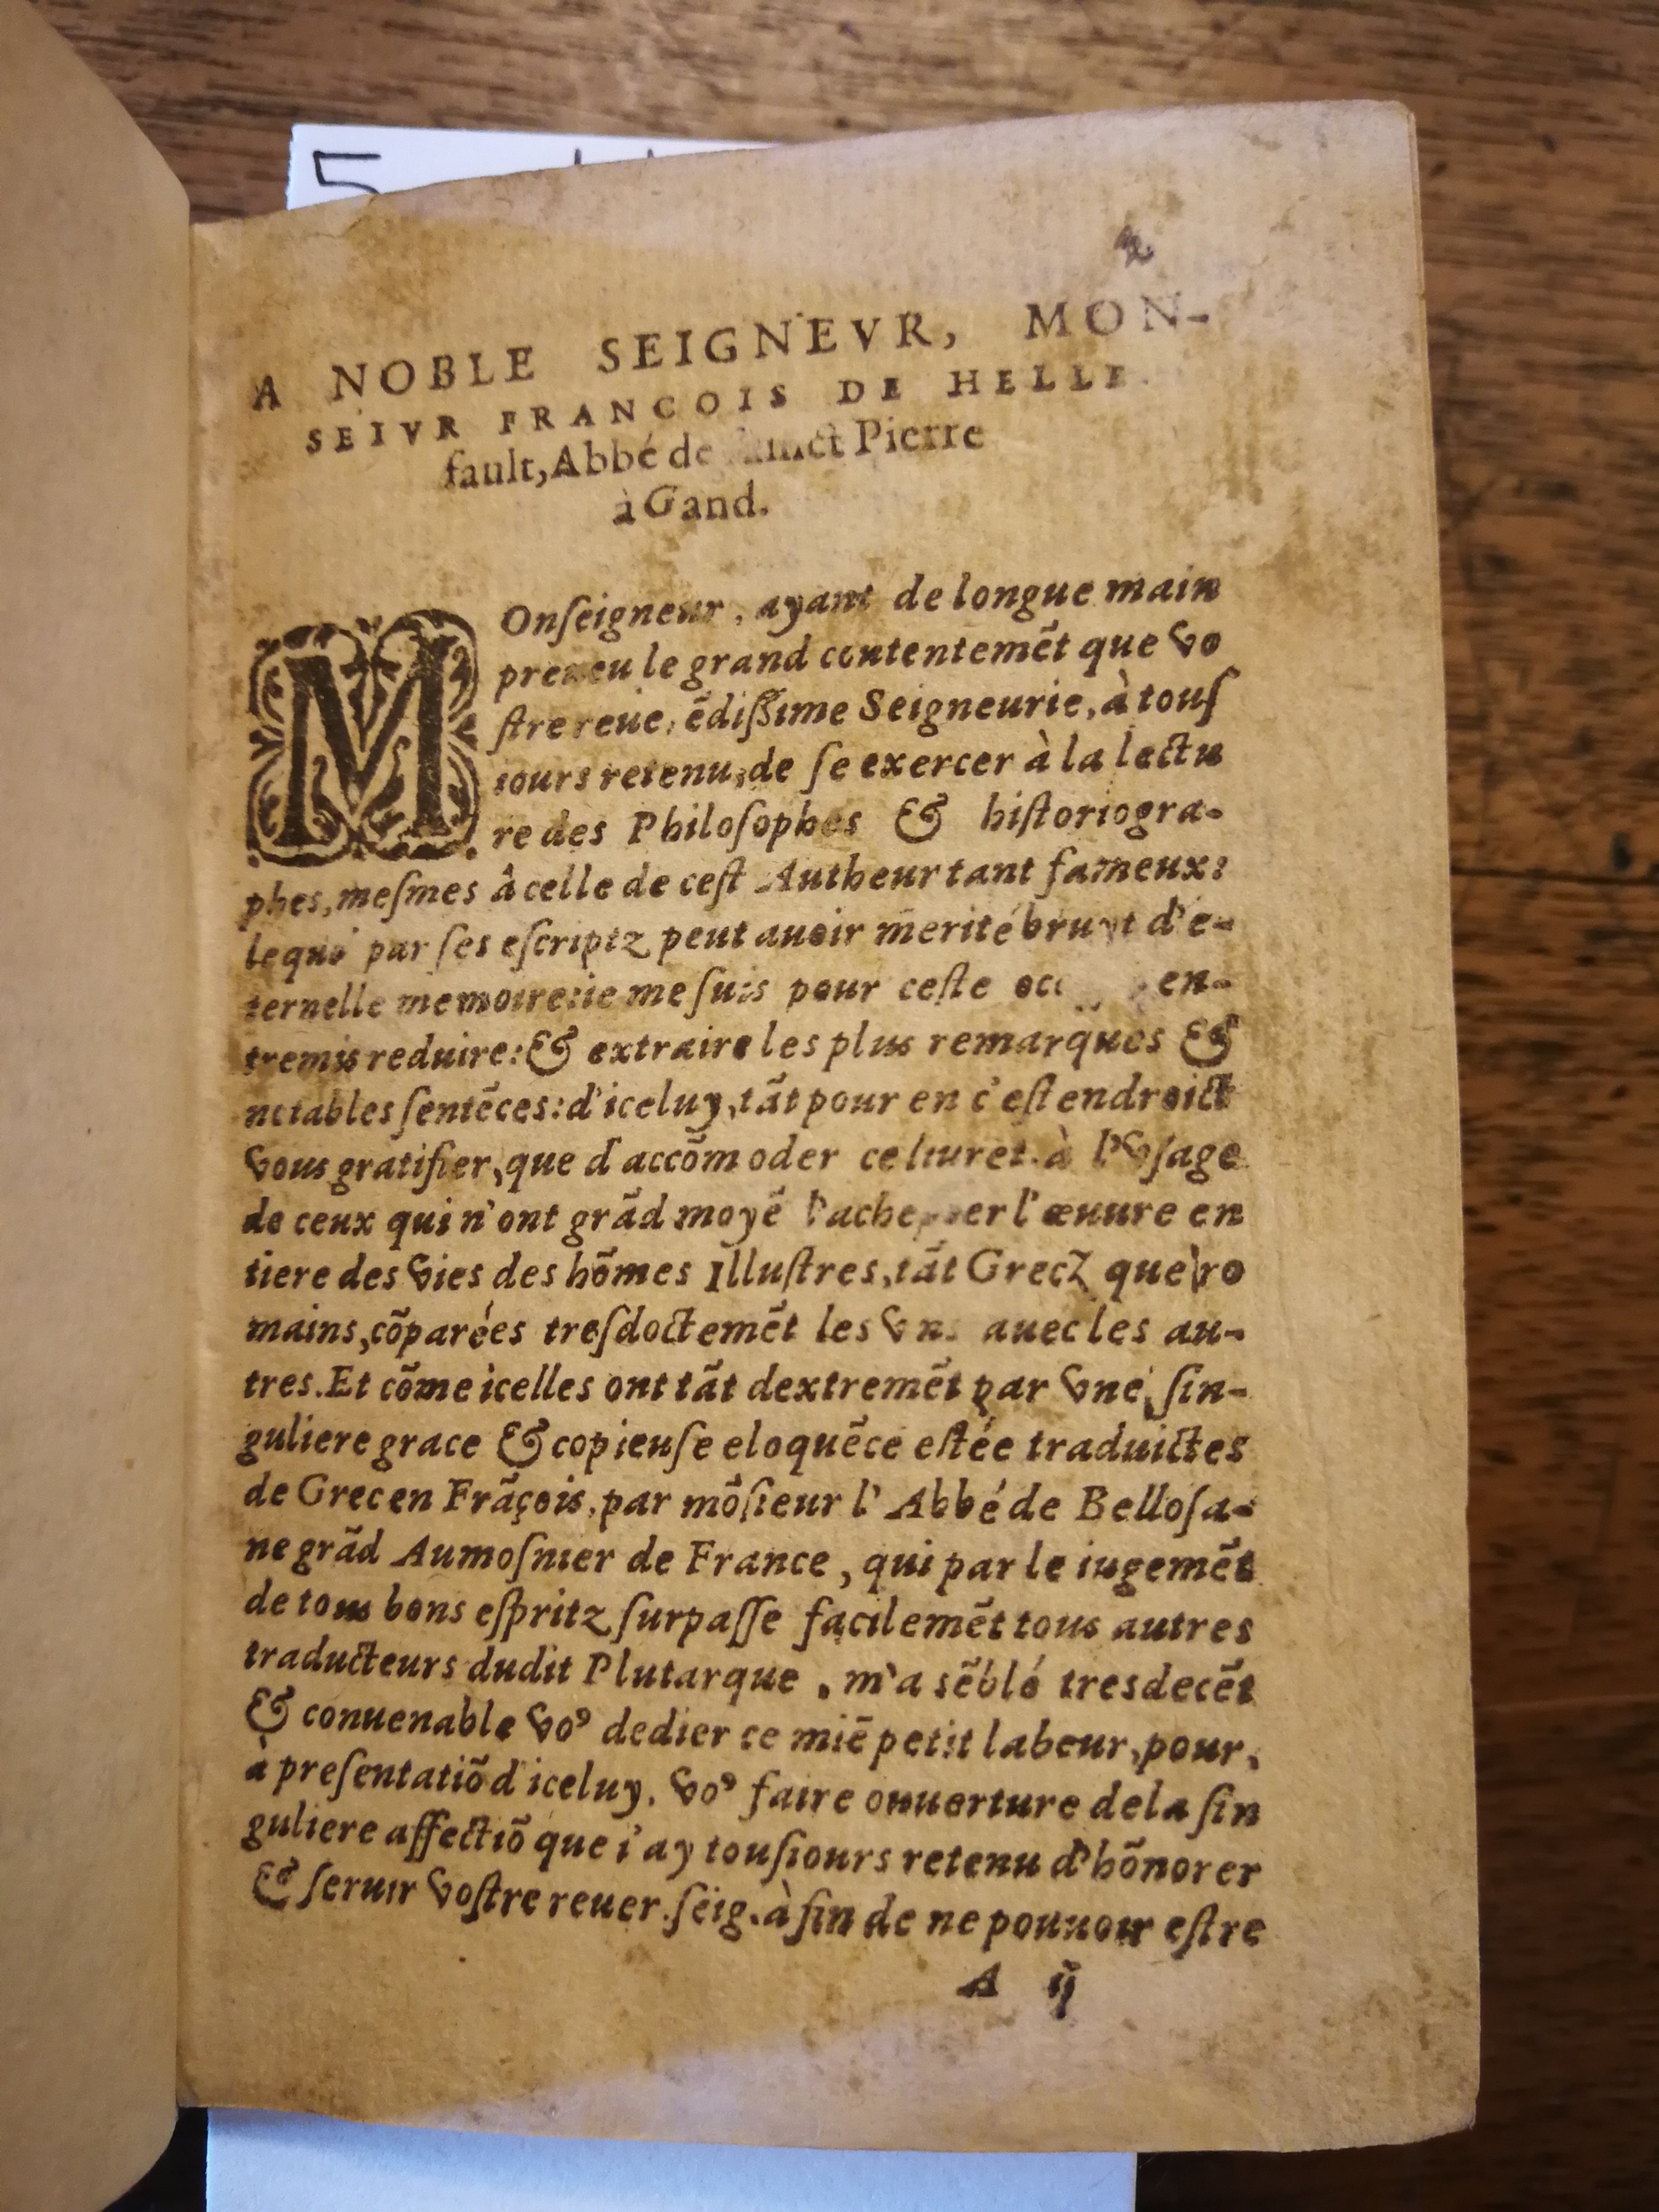 5
A NOBLE SEIGNEVR, MON-
SEIVR FRANCOIS DE HELLE
fault, Abbé de Pierre
à Gand.
MOnſeigneur, ayant de longue main
preueu le grand contentemẽt que vo
ſtre reue, ẽdiſſime Seigneurie, à touſ
iours retenu, de ſe exercer à la lectu
re des Philoſophes & hiſtoriogra-
phes, meſmes â celle de ceſt Autheur tant fameux:
lequi par ſes eſcriptz peut auoir merité bruyt d'e-
ternelle memoire: ie me ſuis pour ceſte en-
tremis reduire: & extraire les plus remarques &
notables ſentẽces: d'iceluy, tãt pour en c'eſt endroict
vous gratifier, que d'accõmoder ce liuret. à l'vſage
de ceux qui n'ont grãd moyẽ l'œuure en
tiere des vies des hõmes Illuſtres, tãt Grecz que ro
mains, cõparées treſdoctemẽt les vns auec les au-
tres. Et cõme icelles ont tãt dextremẽt par vne ſin-
guliere grace & copieuſe eloquẽce eſtée traduictes
de Grec en Frãçois, par mõſieur l'Abbé de Belloſa-
ne grãd Aumoſnier de France, qui par le iugemẽt
de tous bons eſpritz ſurpaſſe facilemẽt tous autres
traducteurs dudit Plutarque, m'a sẽblé tresdecẽt
& conuenable voꝰ dedier ce miẽ petit labeur, pour,
à preſentatiõ d'iceluy, voꝰ faire ouuerture de la ſin
guliere affectiõ que i'ay touſiours retenu d'hõnorer
& ſeruir voſtre reuer. ſeig. à fin de ne pouuoir eſtre
A ij